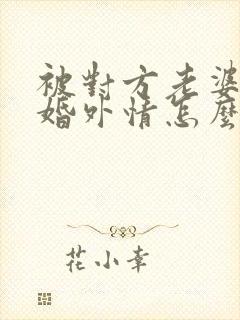 被對方老婆
婚外情怎麼
花小幸